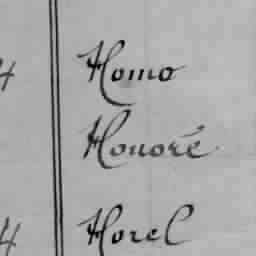 4 Homo
Honoré
4 Horel